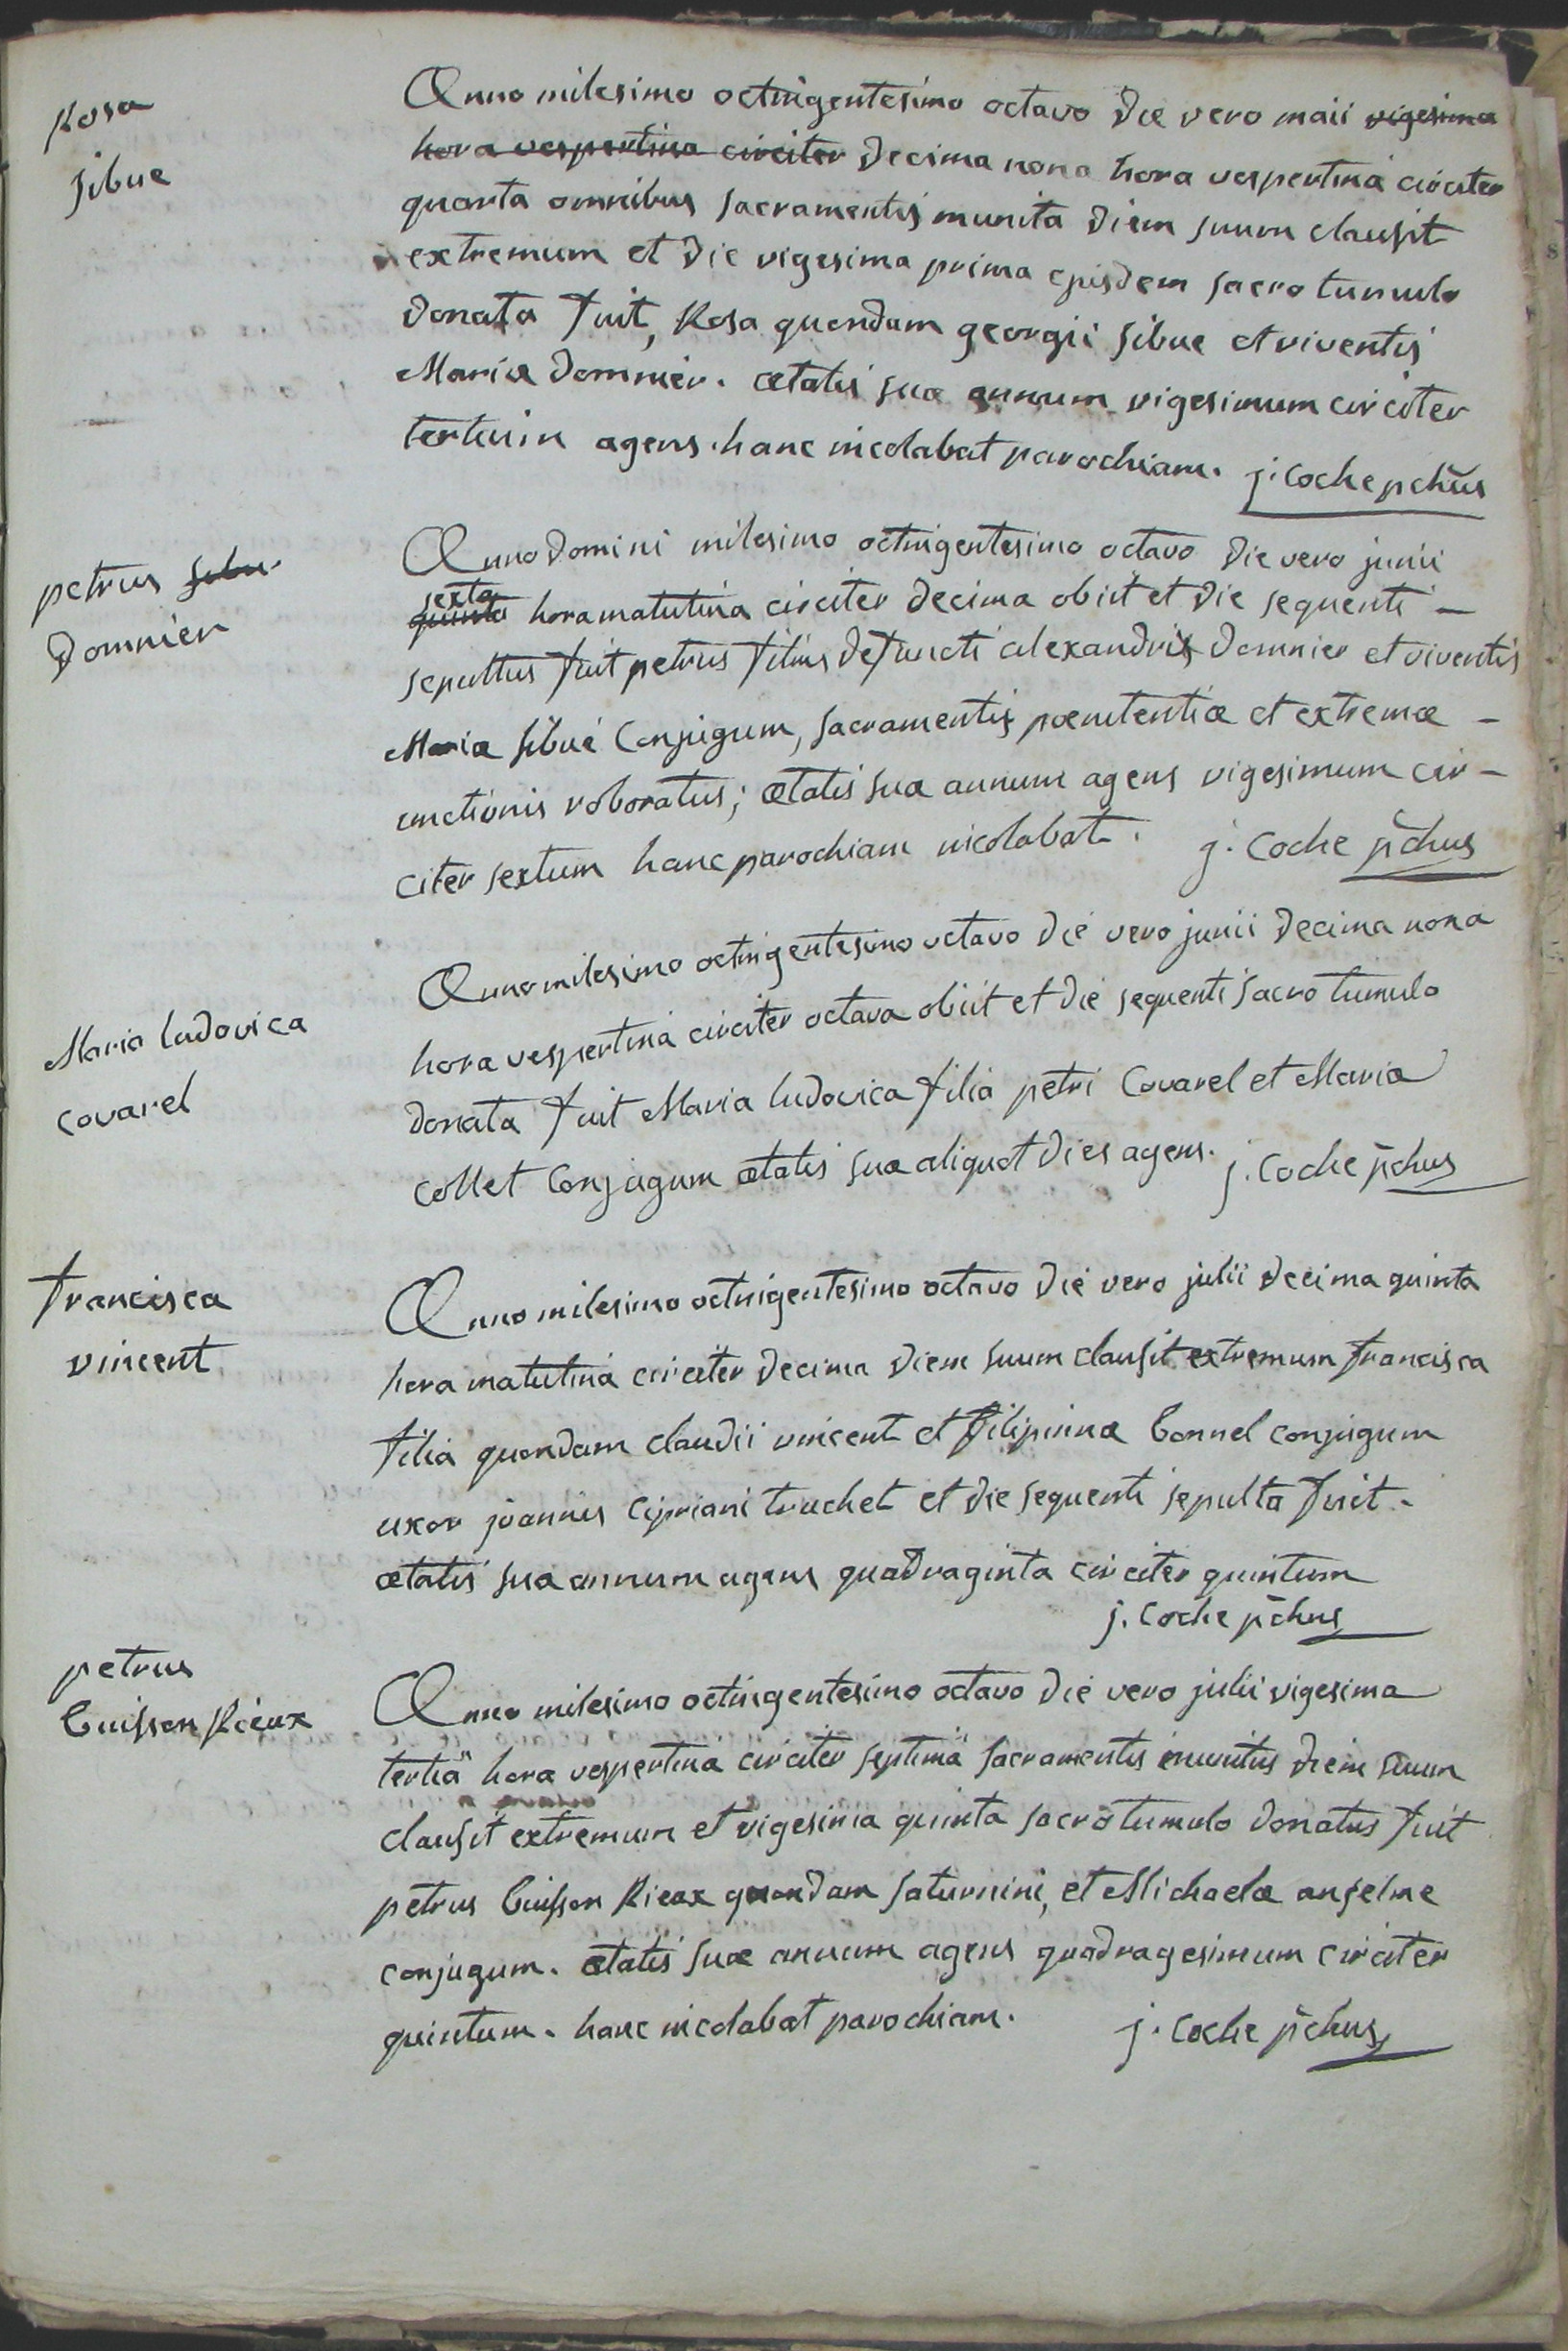 Rosa
sibue
Anno milesimo octingentesimo octavo die vero maii vigesima
hora vespertina circiter decima nona hora vespertinâ circiter
quarta omnibus sacramentis munita diem suum clausit
extremum et die vigesima prima ejusdem sacro tumulo
donata fuit, Rosa quondam georgii sibue et viventis
Mariæ domnier. ætatis suæ annum vigesimum circiter
tertium agens. hanc incolabat parochiam. j. Coche pchūs
petrus sibu
domnier
Anno domini milesimo octingentesimo octavo die vero junii
sexta
quinta hora matutina circiter decima obiit et die sequenti -
sepultus fuit petrus filius defuncti alexandri domnier et viventis
Mariæ sibué Conjugum, sacramentis pœnitentiæ et extremæ -
unctionis roboratus; ætatis suæ annum agens vigesimum cir-
citer sextum hanc parochiam incolabat. j. Coche pchūs
Maria ludovica
covarel
Anno milesimo octingentesimo octavo die vero junii decima nona
hora vespertinâ circiter octava obiit et die sequenti sacro tumulo
donata fuit Maria ludovica filia petri Covarel et Mariæ
collet Conjugum ætatis suæ aliquot dies agens. j. Coche pchūs
francisca
vincent
Anno milesimo octingentesimo octavo die vero julii decima quinta
hora matutinâ circiter decima diem suum clausit extremum francisca
filia quondam claudii vincent et filipinna bonnel conjugum
uxor joannis cipriani truchet et die sequenti sepulta fuit.
ætatis suæ annum agens quadraginta circiter quintum
j. Coche pchūs
petrus
buisson Rieux
Anno milesimo octingentesimo octavo die vero julii vigesima
tertiâ hora vespertinâ circiter septimâ sacramentis munitus diem suum
clausit extremum et vigesima quinta sacro tumulo donatus fuit
petrus buisson Rieux quondam saturnini, et Michaelæ anselme
conjugum. ætatis suæ annum agens quadragesimum circiter
quintum. hanc incolabat parochiam. j. Coche pchūs